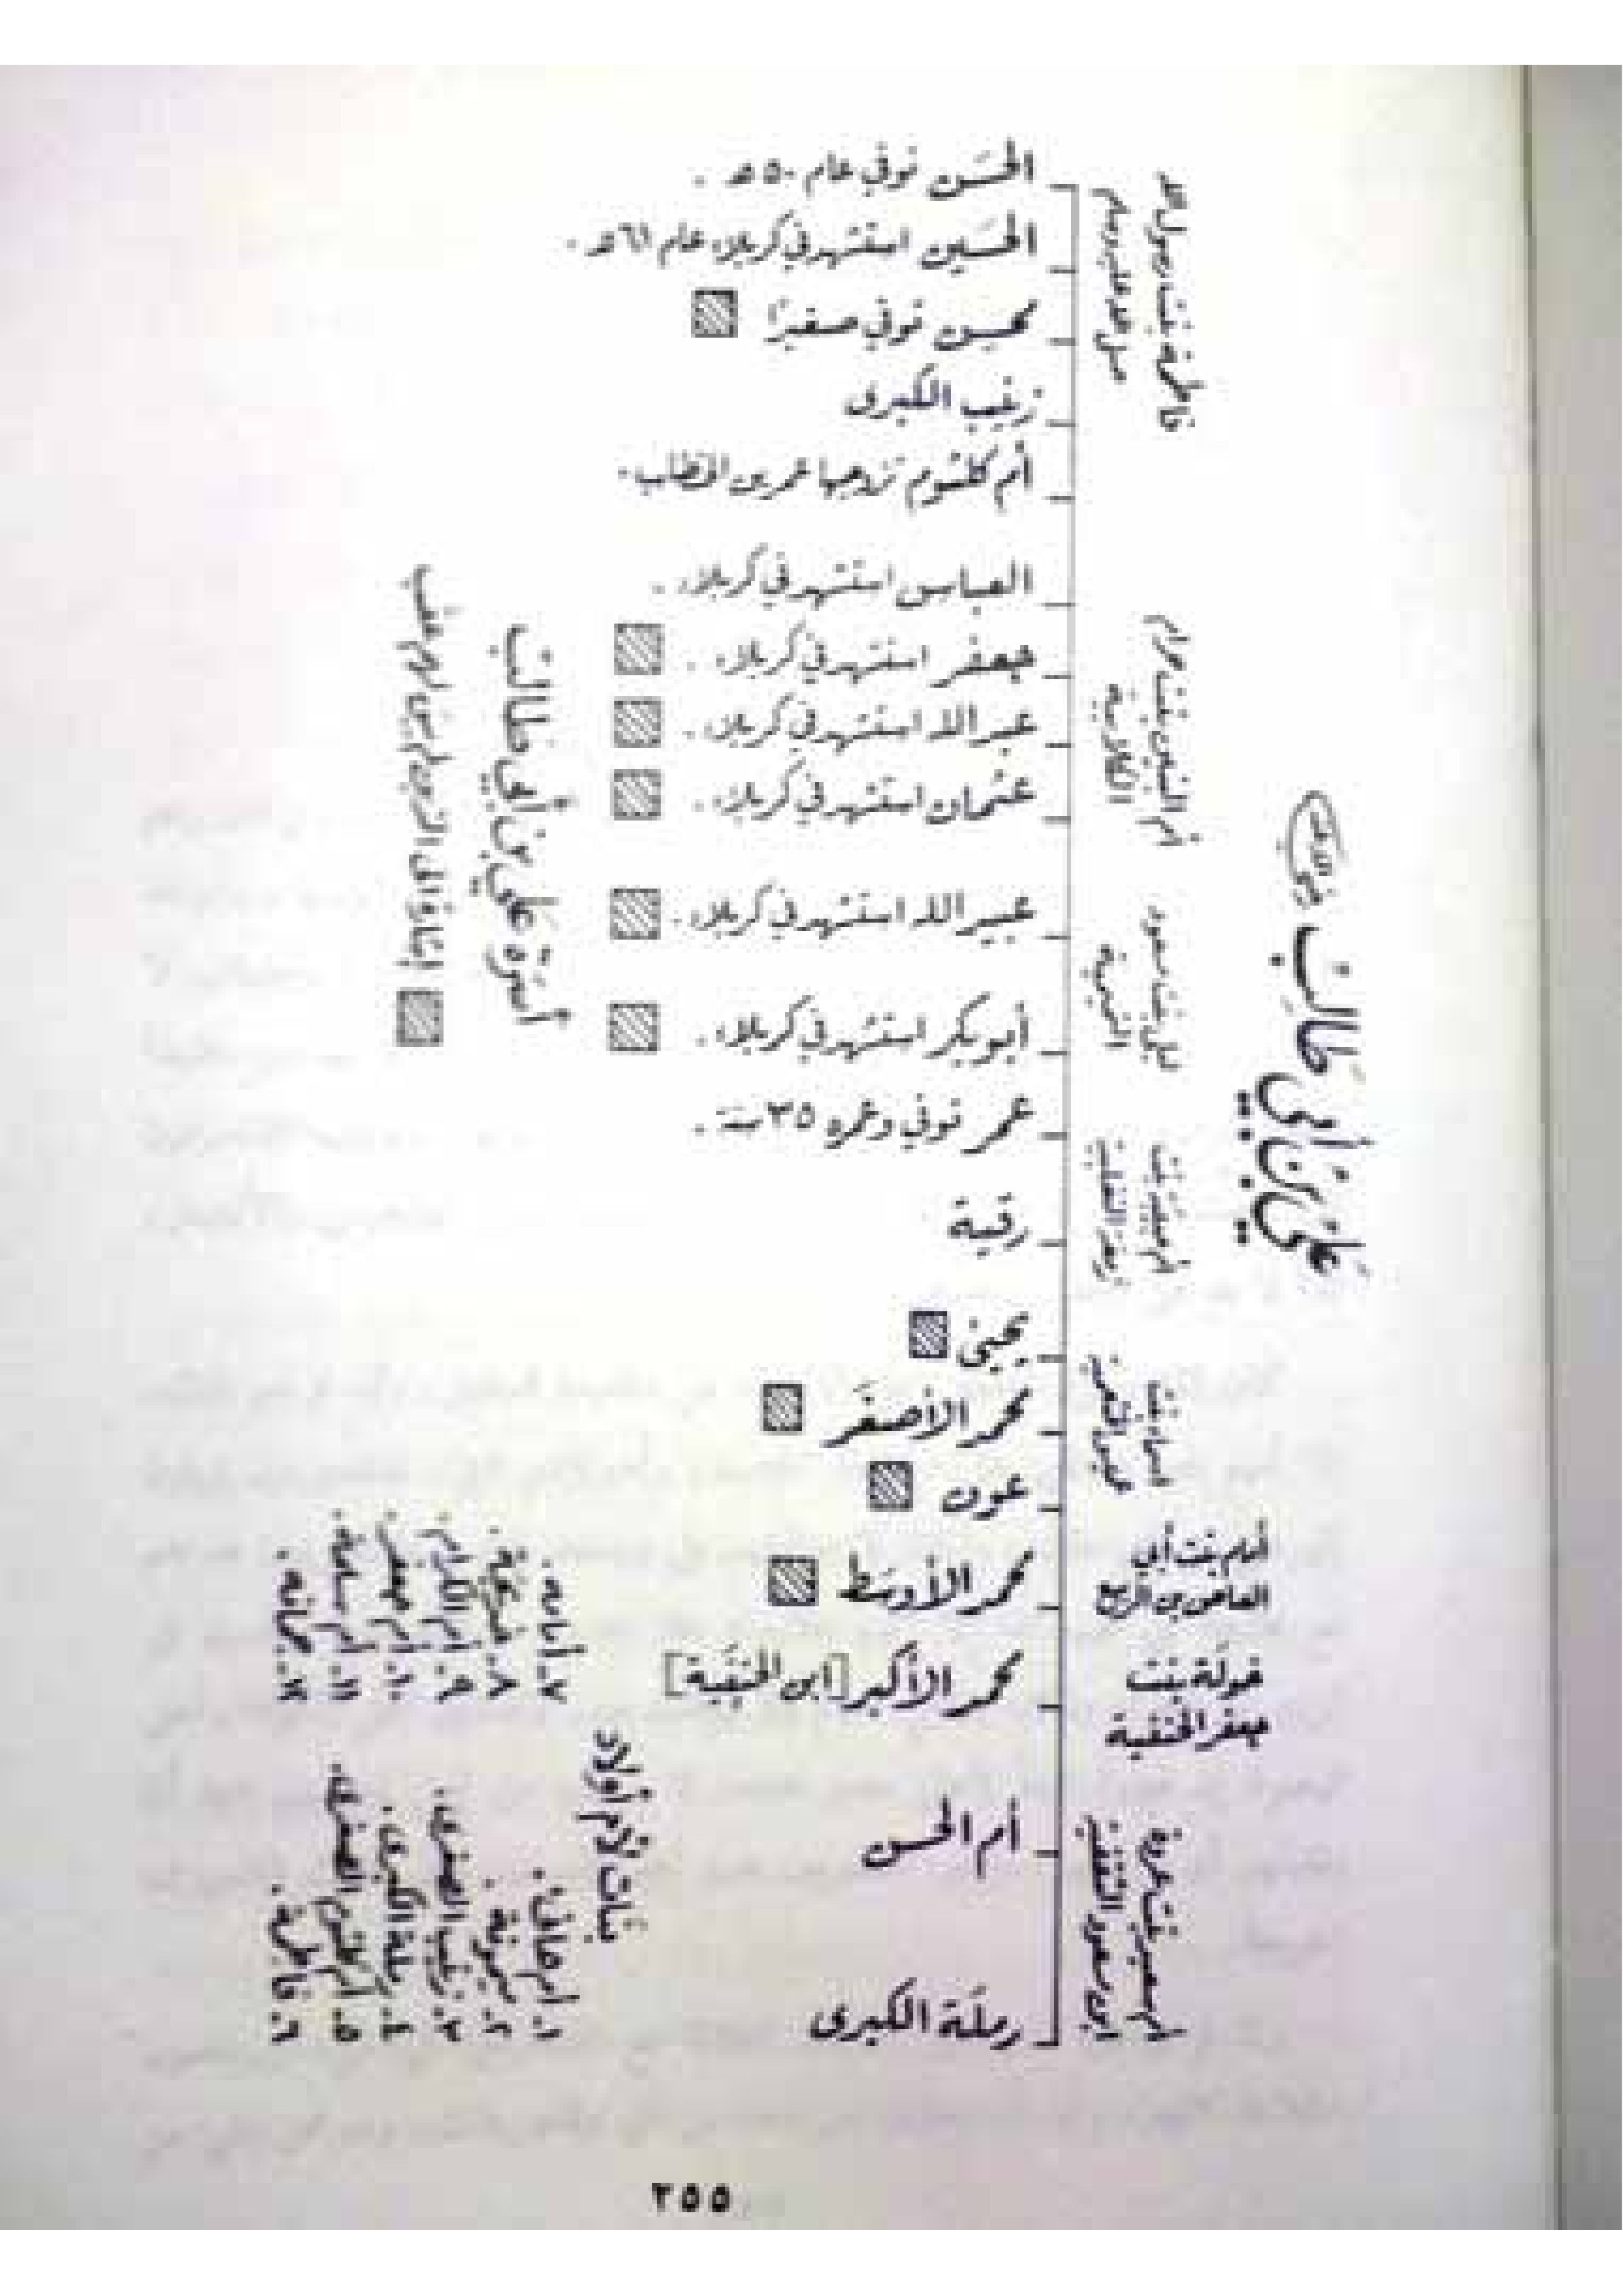 علي بن أبي طالب
رضي الله عنه
فاطمة بنت رسول الله
صلى الله عليه وسلم
الحسَن توفي عام ٥٠هـ .
الحسَين استشهد في كربلاء عام ٦١هـ .
محسن توفي صغيرًا
زينب الكبرى
أم كلثوم تزوجها عمر بن الخطاب .
أم البنين بنت حرام
الكلابية
العباس استشهد في كربلاء .
جعفر استشهد في كربلاء .
عبد الله استشهد في كربلاء .
عثمان استشهد في كربلاء .
ليلى بنت مسعود
عبيد الله استشهد في كربلاء .
أبو بكر استشهد في كربلاء .
أم حبيب بنت
عمر توفي وعمره ٣٥ سنة .
رقية
أسماء بنت
عميس الخثعمية
يحيى
محمد الأصغر
عون
أمامة بنت أبي
العاص بن الربيع
محمد الأوسط
خولة بنت
جعفر الحنفية
محمد الأكبر [ابن الحنفية]
أم سعيد بنت عروة
ابن مسعود الثقفي
أم الحسن
رملة الكبرى
بنات لأم أولاد
١ـ أم هانئ.
٢ـ ميمونة.
٣ـ زينب الصغرى.
٤ـ رملة الكبرى.
٥ـ أم كلثوم الصغرى.
٦ـ فاطمة.
٧ـ أمامة.
٨ـ خديجة.
٩ـ أم الكرام.
١٠ـ أم جعفر.
١١ـ أم سلمة.
١٢ـ جمانة.
أسرة علي بن أبي طالب
إشارة إلى الذين لم يكن لهم عقب
٢٥٥